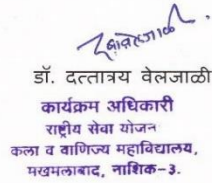 डॉ. दत्तात्रय वेलजाळी
कार्यक्रम अधिकारी
राष्ट्रीय सेवा योजन
कला व वाणिज्य महाविद्यालय,
मखमलाबाद, नाशिक-३.